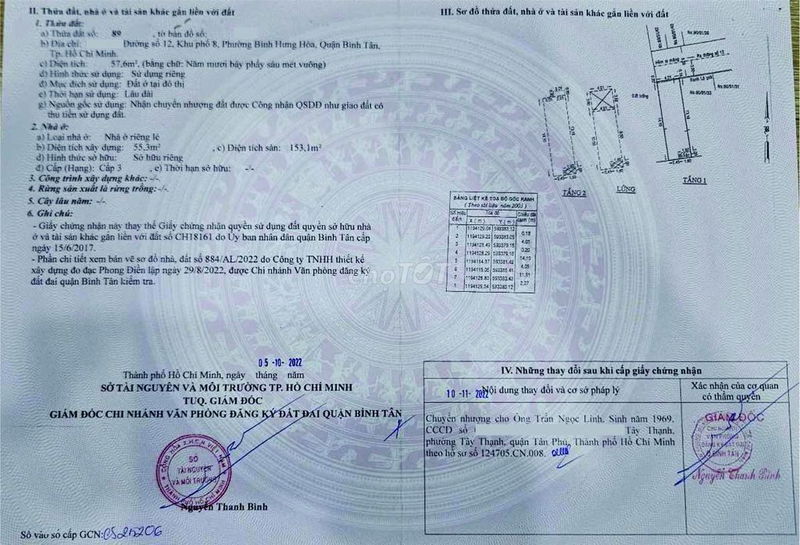 II. Thửa đất, nhà ở và tài sản khác gắn liền với đất
1. Thửa đất:
a) Thửa đất số: 89 , tờ bản đồ số:
b) Địa chỉ: Đường số 12, Khu phố 8, Phường Bình Hưng Hòa, Quận Bình Tân,
Tp. Hồ Chí Minh.
c) Diện tích: 57,6m², (bằng chữ: Năm mươi bảy phẩy sáu mét vuông)
d) Hình thức sử dụng: Sử dụng riêng
đ) Mục đích sử dụng: Đất ở tại đô thị
e) Thời hạn sử dụng: Lâu dài
g) Nguồn gốc sử dụng: Nhận chuyển nhượng đất được Công nhận QSDĐ như giao đất có
thu tiền sử dụng đất.
2. Nhà ở:
a) Loại nhà ở: Nhà ở riêng lẻ
b) Diện tích xây dựng: 55,3m² , c) Diện tích sàn: 153,1m²
d) Hình thức sở hữu: Sở hữu riêng
đ) Cấp (Hạng): Cấp 3 , e) Thời hạn sở hữu: -/-
3. Công trình xây dựng khác: -/-
4. Rừng sản xuất là rừng trồng: -/-
5. Cây lâu năm: -/-
6. Ghi chú:
- Giấy chứng nhận này thay thế Giấy chứng nhận quyền sử dụng đất quyền sở hữu nhà
ở và tài sản khác gắn liền với đất số CH18161 do Ủy ban nhân dân quận Bình Tân cấp
ngày 15/6/2017.
- Phần chi tiết xem bản vẽ sơ đồ nhà, đất số 884/AL/2022 do Công ty TNHH thiết kế
xây dựng đo đạc Phong Điền lập ngày 29/8/2022, được Chi nhánh Văn phòng đăng ký
đất đai quận Bình Tân kiểm tra.
05-10-2022
Thành phố Hồ Chí Minh, ngày tháng năm
SỞ TÀI NGUYÊN VÀ MÔI TRƯỜNG TP. HỒ CHÍ MINH
TUQ. GIÁM ĐỐC
GIÁM ĐỐC CHI NHÁNH VĂN PHÒNG ĐĂNG KÝ ĐẤT ĐAI QUẬN BÌNH TÂN
SỞ
TÀI NGUYÊN
VÀ MÔI TRƯỜNG
Nguyễn Thanh Bình
Số vào sổ cấp GCN: CS25206
III. Sơ đồ thửa đất, nhà ở và tài sản khác gắn liền với đất
TẦNG 2
LỬNG
TẦNG 1
BẢNG LIỆT KÊ TỌA ĐỘ GÓC RANH
Tọa độ
X (m) Y (m)
choTỐT
IV. Những thay đổi sau khi cấp giấy chứng nhận
10-11-2022
Nội dung thay đổi và cơ sở pháp lý
Xác nhận của cơ quan
có thẩm quyền
Chuyển nhượng cho Ông Trần Ngọc Linh, Sinh năm 1969,
CCCD số Tây Thạnh,
phường Tây Thạnh, quận Tân Phú, Thành phố Hồ Chí Minh
theo hồ sơ số 124705.CN.008.
GIÁM ĐỐC
Nguyễn Thanh Bình